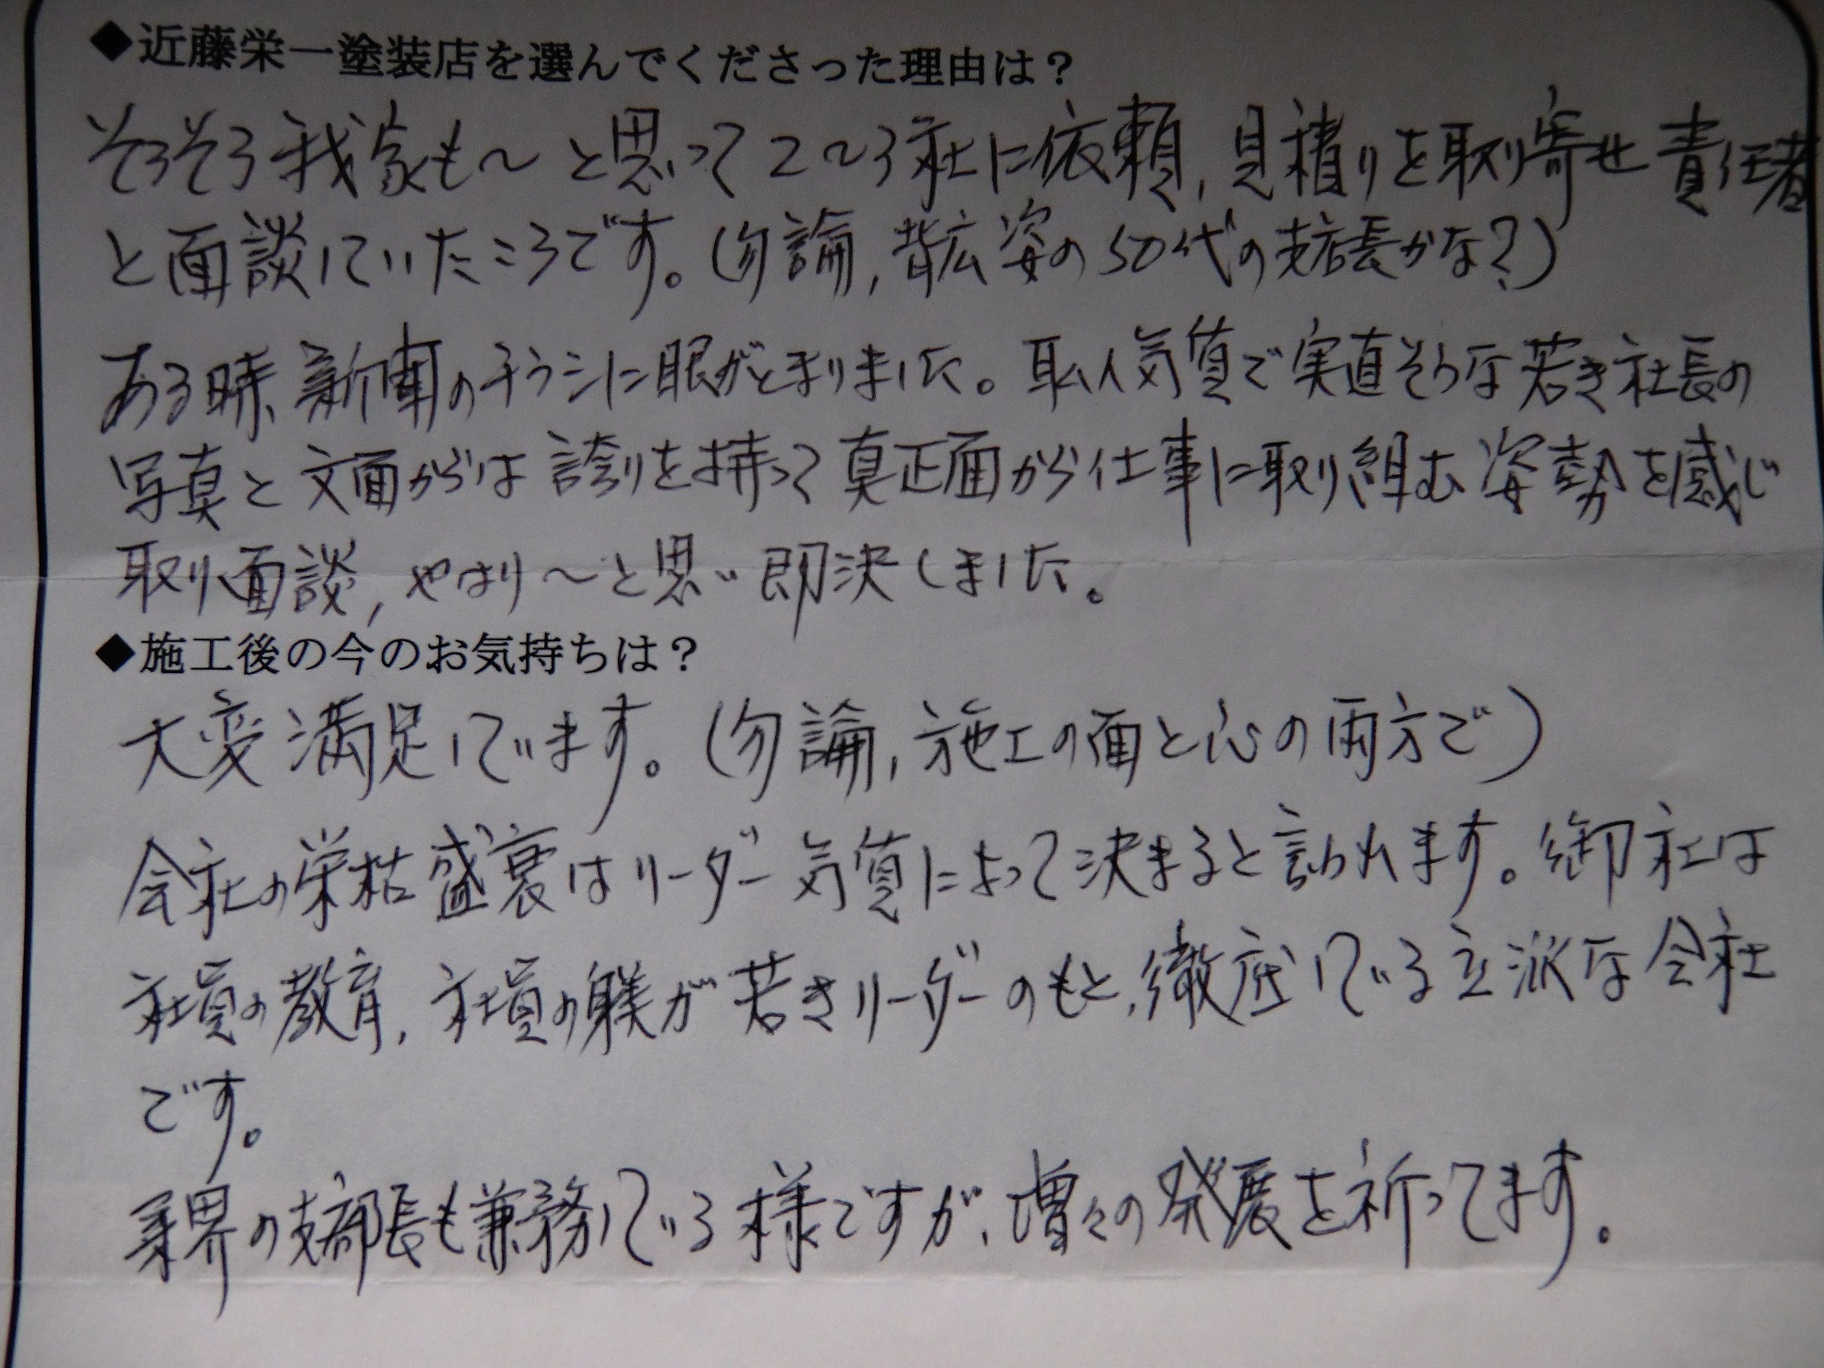 ◆近藤栄一塗装店を選んでくださった理由は？
そろそろ我家も～と思って2～3社に依頼,見積りを取り寄せ責任者
と面談していたころです。(勿論,背広姿の50代の支店長かな?)
ある時、新聞のチラシに眼がとまりました。職人気質で実直そうな若き社長の
写真と文面からは誇りを持って真正面から仕事に取り組む姿勢を感じ
取り面談,やはり～と思い即決しました。
◆施工後の今のお気持ちは？
大変満足しています。(勿論,施工の面と心の両方で)
会社の栄枯盛衰はリーダー気質によって決まると言われます。御社は
社員の教育,社員の躾が若きリーダーのもと,徹底している立派な会社
です。
業界の支部長も兼務している様ですが、増々の発展を祈ってます。